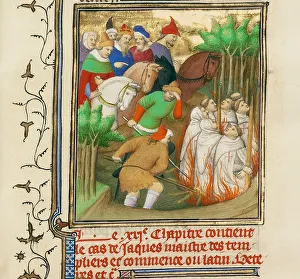 e .xxi.e Chapitre contient
le cas de Jaques maistre des tem
pliers et commence ou latin. Dete
res et c